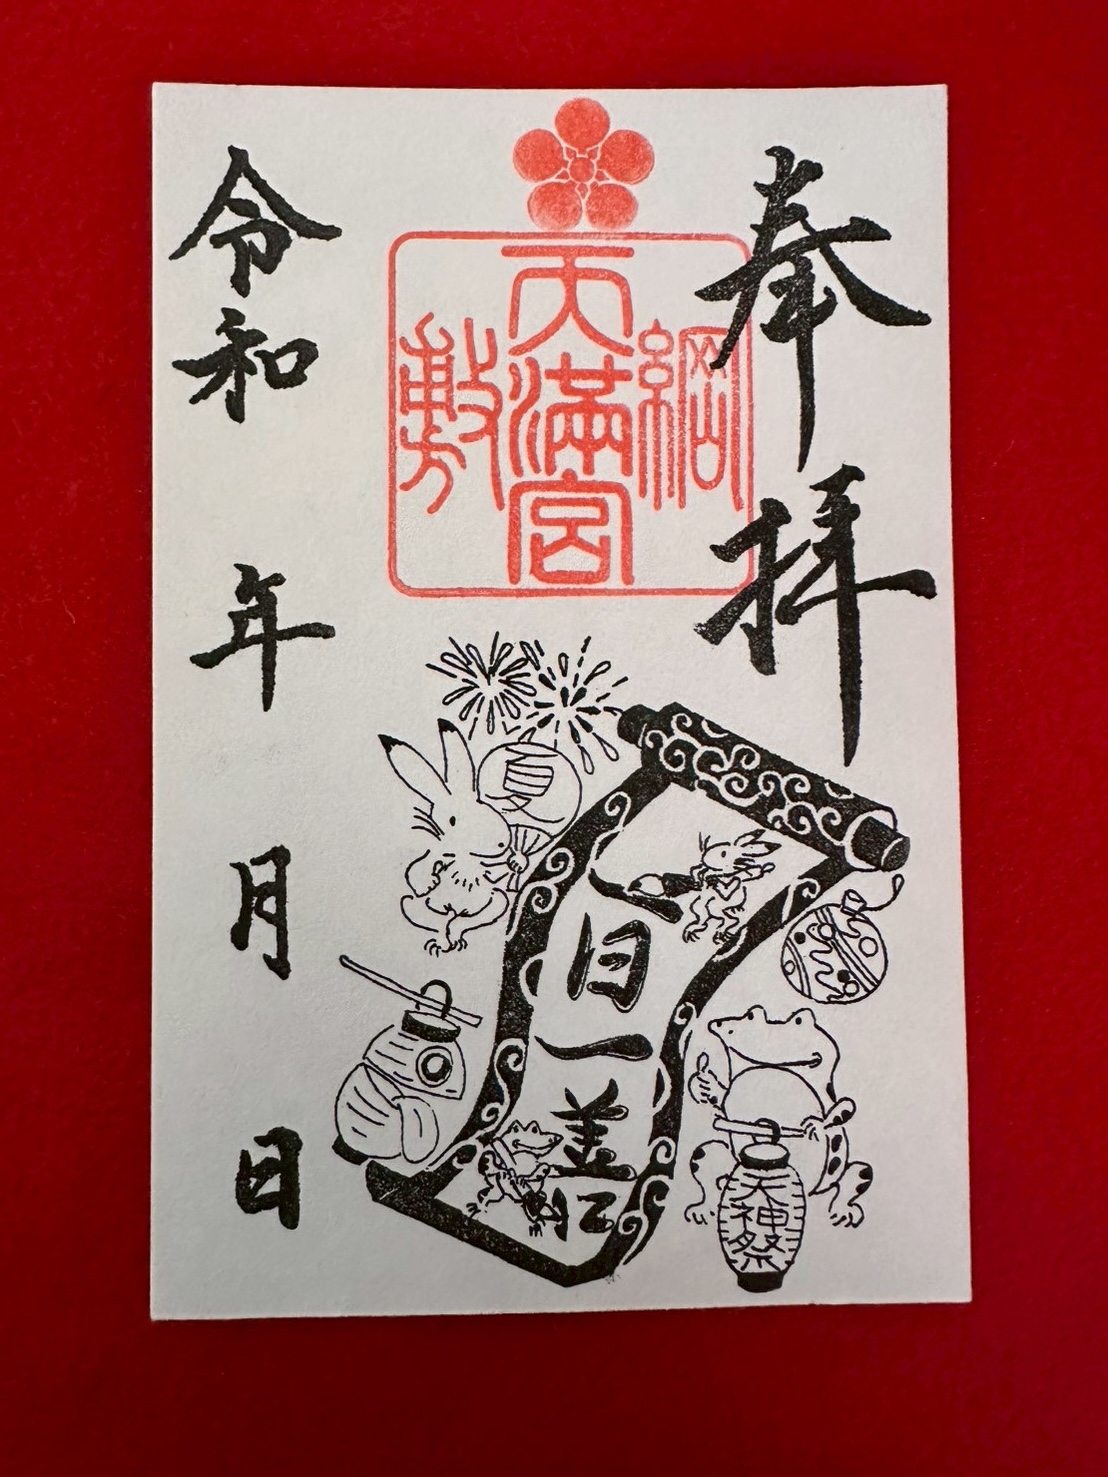 奉拝
綱敷
天満宮
一日一善
天神祭
令和 年 月 日